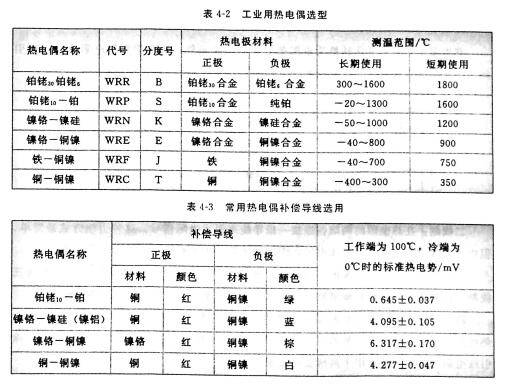 表 4-2 工业用热电偶选型
热电偶名称 代号 分度号 热电极材料 测温范围/℃
正极 负极 长期使用 短期使用
铂铑₃₀铂铑₆ WRR B 铂铑₃₀合金 铂铑₆合金 300～1600 1800
铂铑₁₀—铂 WRP S 铂铑₁₀合金 纯铂 —20～1300 1600
镍铬—镍硅 WRN K 镍铬合金 镍硅合金 —50～1000 1200
镍铬—铜镍 WRE E 镍铬合金 铜镍合金 —40～800 900
铁—铜镍 WRF J 铁 铜镍合金 —40～700 750
铜—铜镍 WRC T 铜 铜镍合金 —400～300 350
表 4-3 常用热电偶补偿导线选用
热电偶名称 补偿导线 工作端为100℃，冷端为
0℃时的标准热电势/mV
正极 负极
材料 颜色 材料 颜色
铂铑₁₀—铂 铜 红 铜镍 绿 0.645±0.037
镍铬—镍硅（镍铝） 铜 红 铜镍 蓝 4.095±0.105
镍铬—铜镍 镍铬 红 铜镍 棕 6.317±0.170
铜—铜镍 铜 红 铜镍 白 4.277±0.047